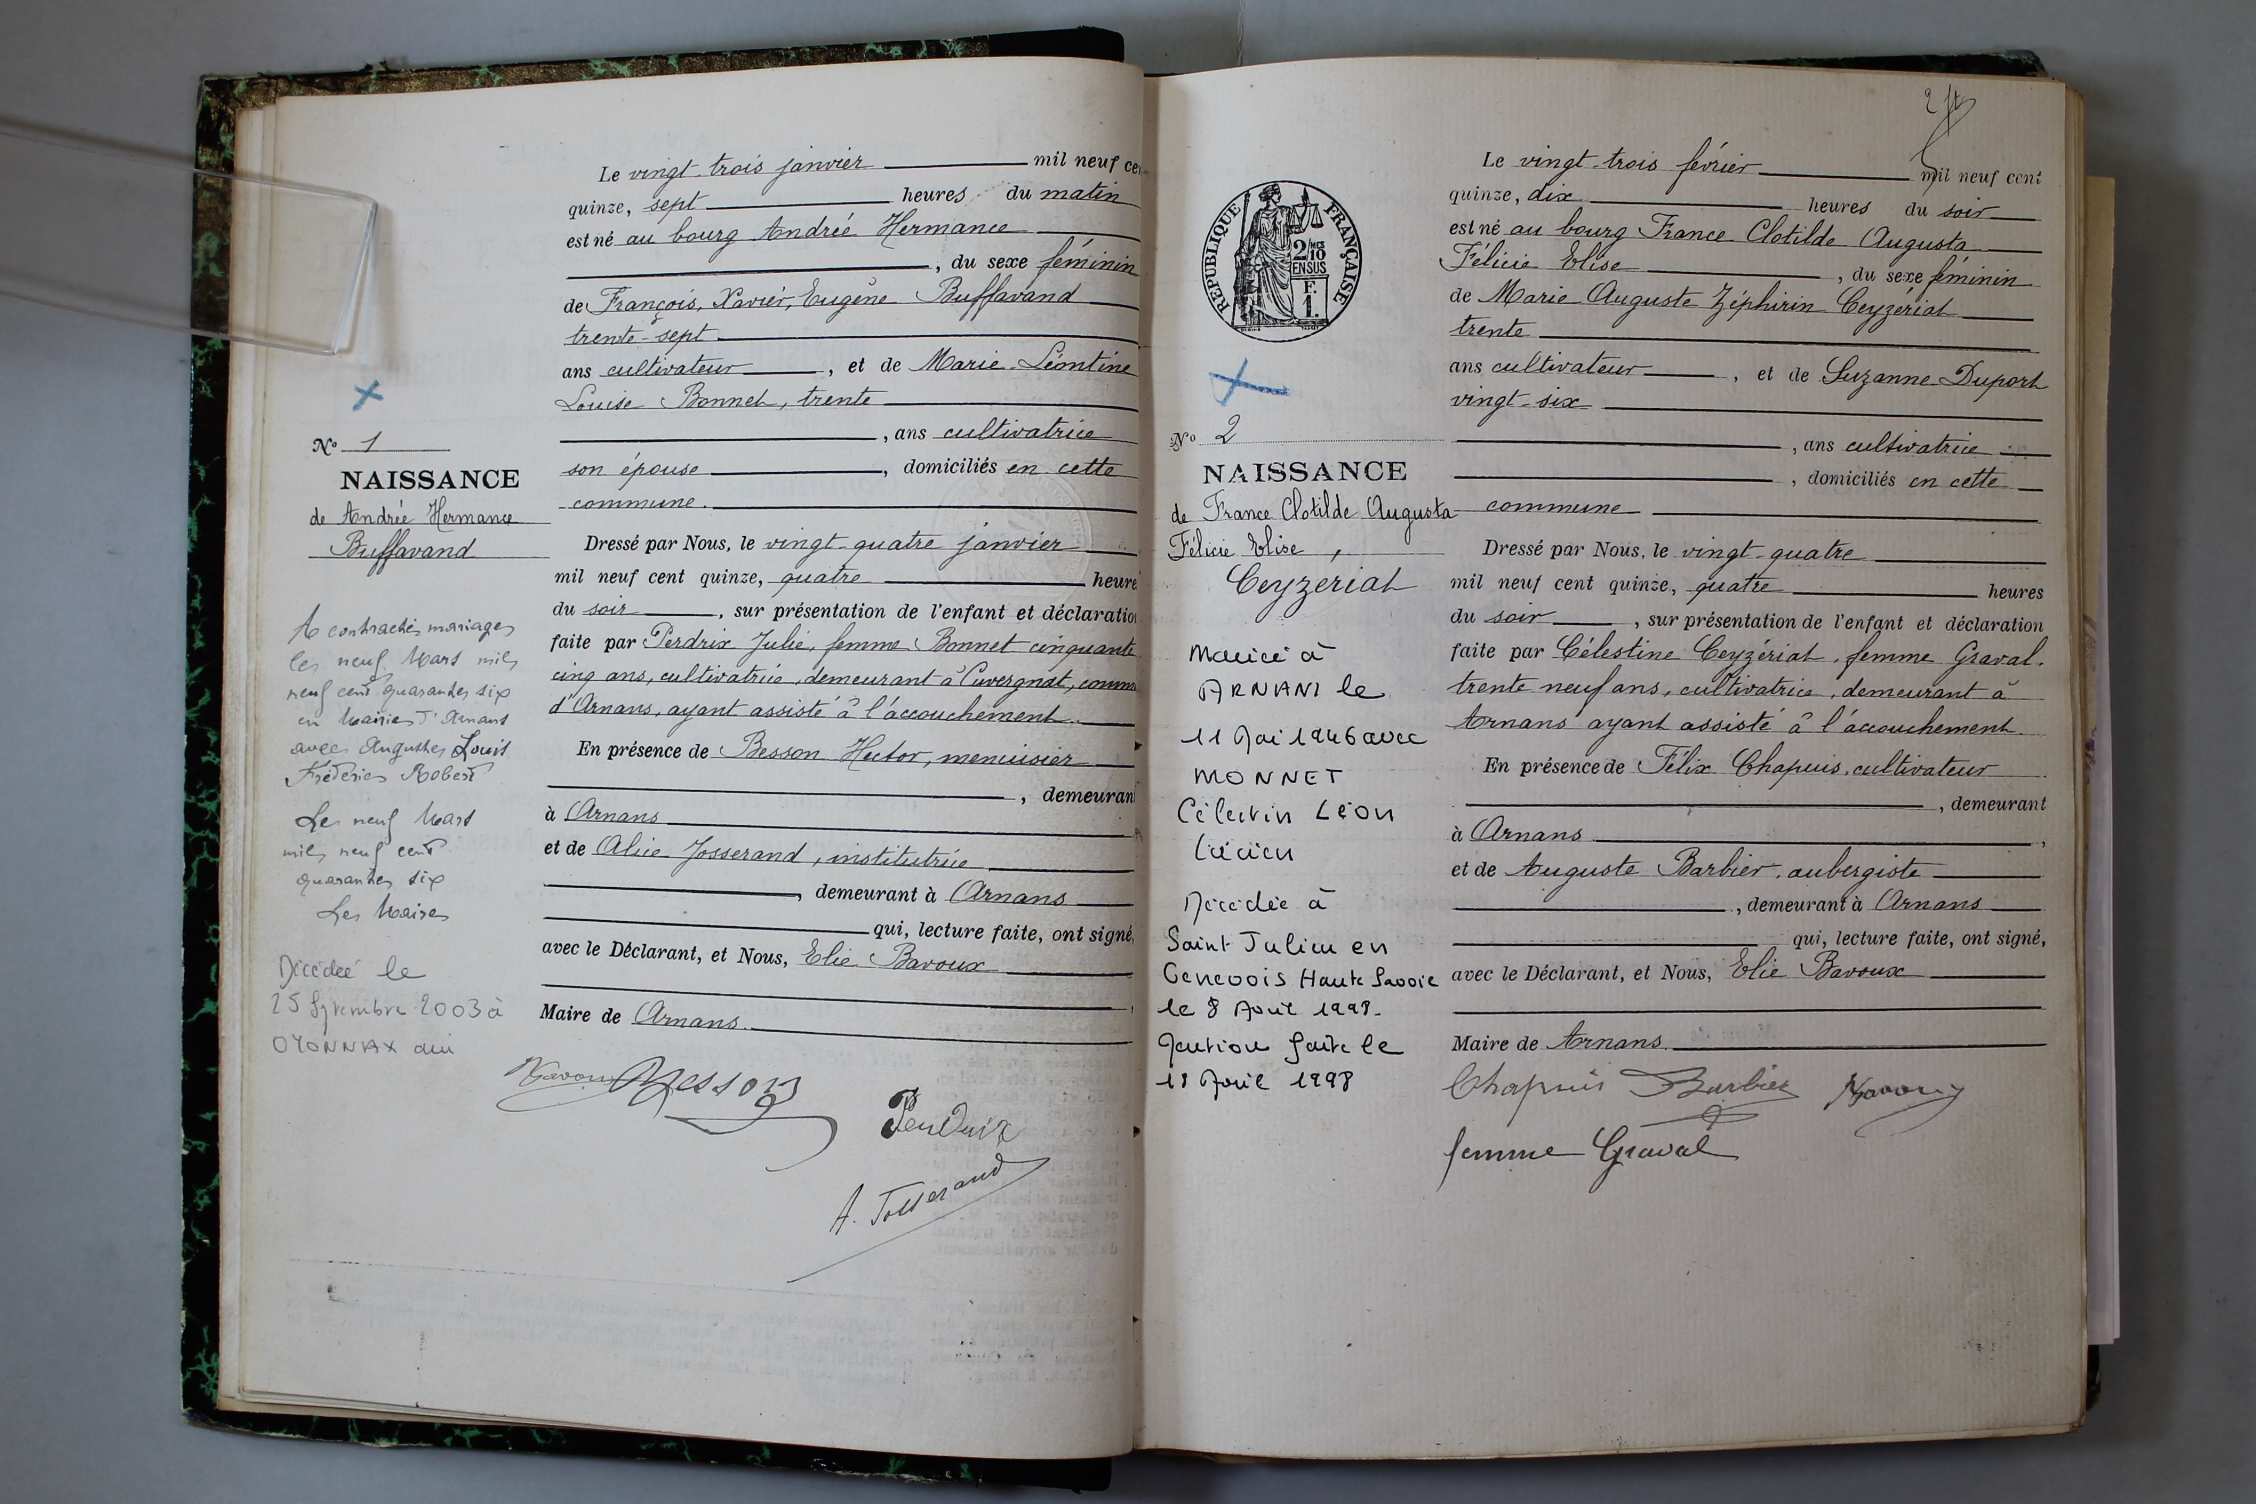 Le vingt-trois janvier mil neuf cen
quinze, sept heures du matin
est né au bourg Andrée Hermance
, du sexe féminin
de François, Xavier, Eugène Buffavand
trente-sept
ans cultivateur, et de Marie Léontine
Louise Bonnet, trente
, ans cultivatrice
son épouse, domiciliés en cette
commune.
Dressé par Nous, le vingt-quatre janvier
mil neuf cent quinze, quatre heure
du soir, sur présentation de l'enfant et déclaration
faite par Perdrix Julie, femme Bonnet cinquante
cinq ans, cultivatrice, demeurant à Cuvergnat, comm
d'Arnans, ayant assisté à l'accouchement.
En présence de Besson Hector, menuisier
, demeurant
à Arnans
et de Alice Josserand, institutrice
, demeurant à Arnans
qui, lecture faite, ont signé,
avec le Déclarant, et Nous, Elie Bavoux
Maire de Arnans
Bavoux Besson
Perdrix
A. Josserand
No 1
NAISSANCE
de Andrée Hermance
Buffavand
A contracté mariage
le neuf Mars mil
neuf cent quarante six
en Mairie d'Arnans
avec Auguste Louis
Frédéric Robert
Le neuf Mars
mil neuf cent
quarante six
Le Maire
Décédée le
25 Septembre 2003 à
OYONNAX
2
REPUBLIQUE FRANÇAISE
2/10
EN SUS
F.
1.
No 2
NAISSANCE
de France Clotilde Augusta
Félicie Elise,
Ceyzériat
Mariée à
ARNANS le
11 Mai 1946 avec
MONNET
Célestin Léon
Lucien
Décédée à
Saint Julien en
Genevois Haute Savoie
le 8 Août 1998.
Mention faite le
18 Août 1998
Le vingt-trois février mil neuf cent
quinze, dix heures du soir
est né au bourg France Clotilde Augusta
Félicie Elise, du sexe féminin
de Marie Auguste Zéphirin Ceyzériat
trente
ans cultivateur, et de Suzanne Duport
vingt-six
, ans cultivatrice
, domiciliés en cette
commune
Dressé par Nous, le vingt-quatre
mil neuf cent quinze, quatre heures
du soir, sur présentation de l'enfant et déclaration
faite par Célestine Ceyzériat, femme Graval.
trente neuf ans, cultivatrice, demeurant à
Arnans ayant assisté à l'accouchement.
En présence de Félix Chapuis, cultivateur
, demeurant
à Arnans,
et de Auguste Barbier, aubergiste
, demeurant à Arnans
qui, lecture faite, ont signé,
avec le Déclarant, et Nous, Elie Bavoux
Maire de Arnans.
Chapuis Barbier Bavoux
femme Graval